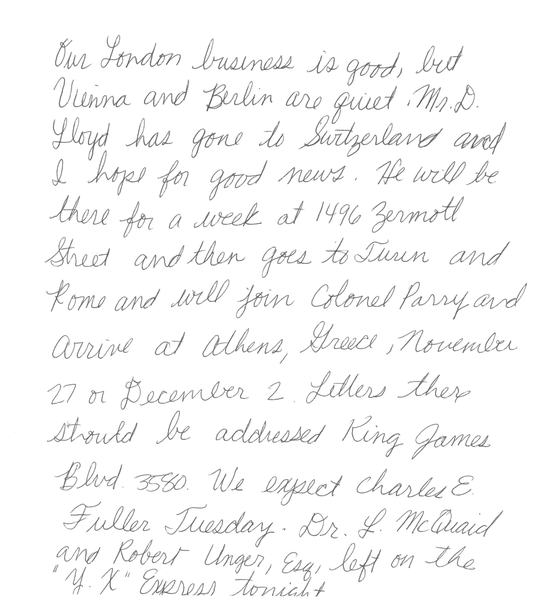 Our London business is good, but
Vienna and Berlin are quiet. Mr. D.
Lloyd has gone to Switzerland and
I hope for good news. He will be
there for a week at 1496 Zermott
Street and then goes to Turin and
Rome and will join Colonel Parry and
arrive at Athens, Greece, November
27 or December 2. Letters there
should be addressed King James
Blvd. 3580. We expect Charles E.
Fuller Tuesday. Dr. L. McQuaid
and Robert Unger, Esq., left on the
"Y. X" Express tonight